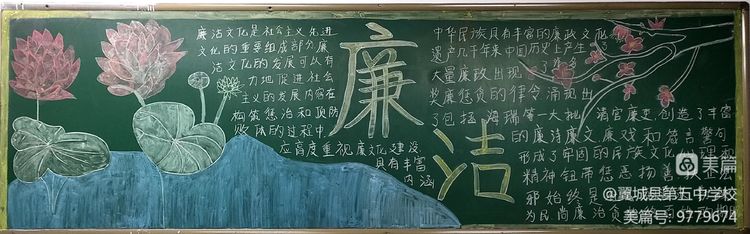 廉洁文化是社会主义先进
文化的重要组成部分廉
洁文化的发展可以有
力地促进社会
主义的发展内容在
构筑惩治和预防
败体的过程中
应高度重视廉文化建设
具有丰富
内涵
廉
洁
中华民族具有丰富的廉政文化
遗产几千年来中国历史上产生了
大量廉政出现了
奖廉惩贪的律令涌现出
了包拯、海瑞等一大批清官廉吏,创造了丰富
的廉诗廉文廉戏和箴言警句
形成了牢固的民族文化心理和
精神纽带惩恶扬善
邪始终是
为民尚廉治贪
美篇
@翼城县第五中学校
美篇号:9779674